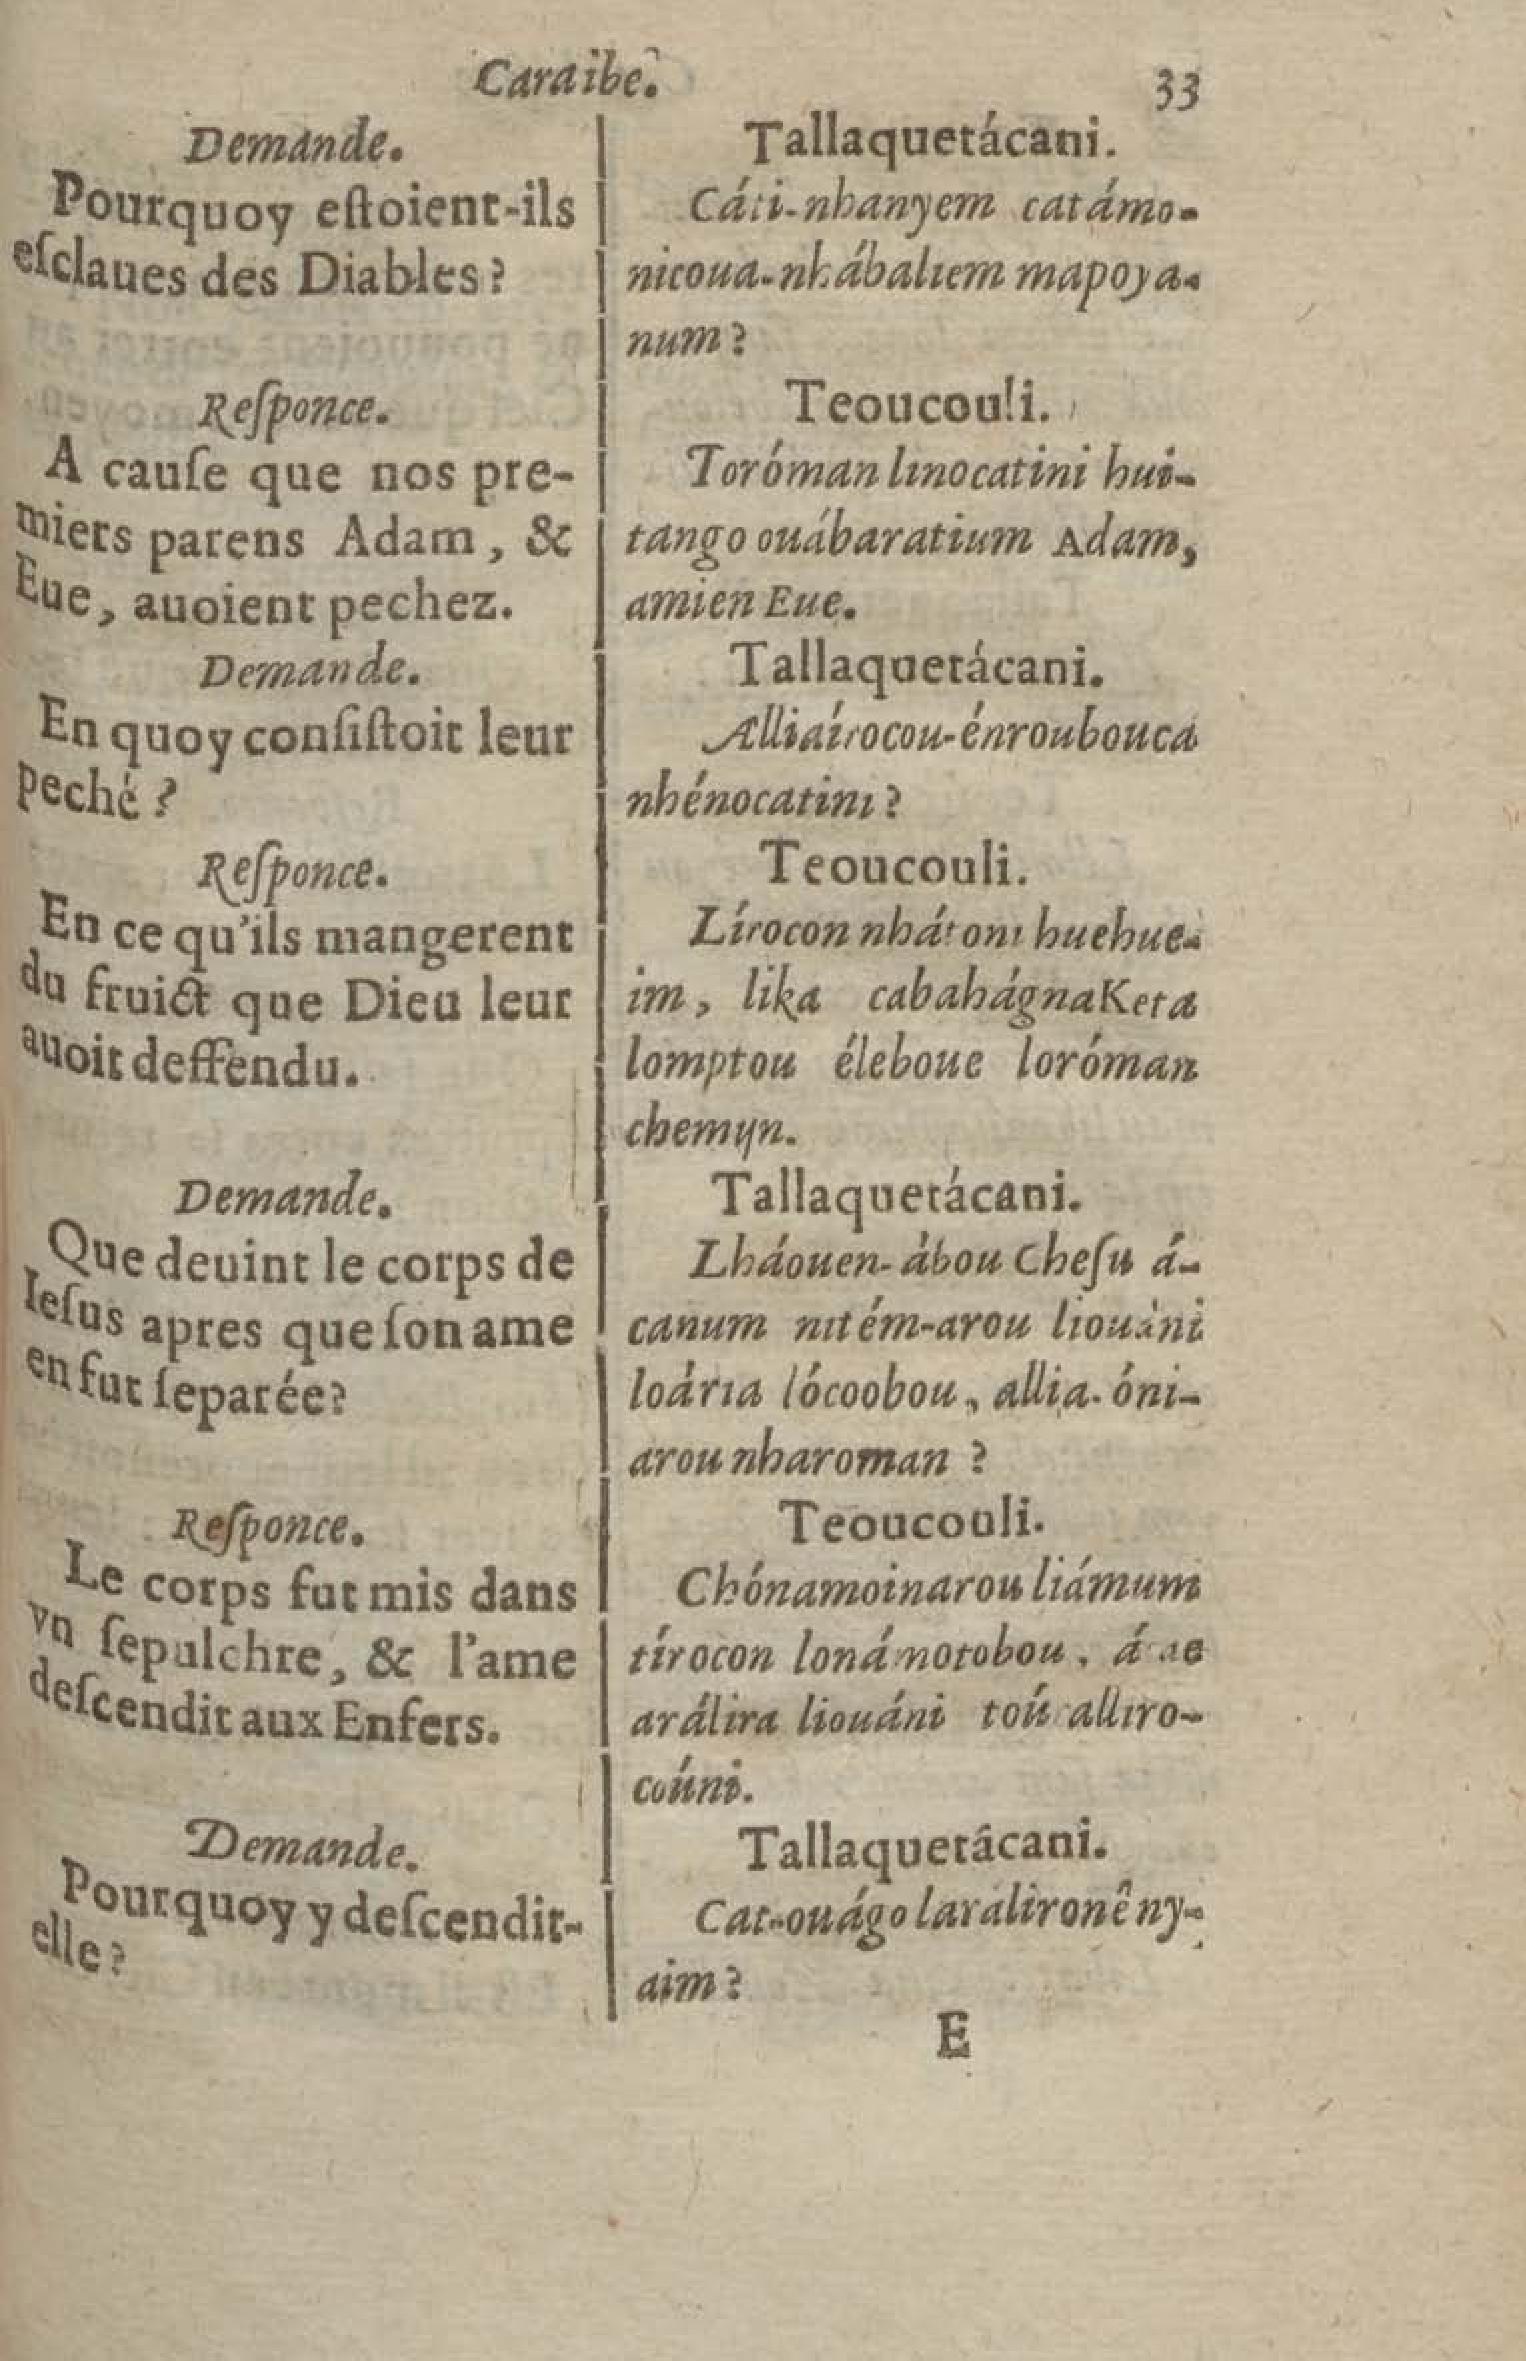 Caraibe. 33
Demande.
Pourquoy eſtoient-ils
eſclaues des Diables?
Reſponce.
A cauſe que nos pre-
miers parens Adam, &
Eue, auoient pechez.
Demande.
En quoy conſiſtoit leur
peché?
Reſponce.
En ce qu'ils mangerent
du fruict que Dieu leur
auoit deffendu.
Demande.
Que deuint le corps de
Ieſus apres que ſon ame
en fut ſeparée?
Reſponce.
Le corps fut mis dans
vn ſepulchre, & l'ame
deſcendit aux Enfers.
Demande.
Pourquoy y deſcendit-
elle?
Tallaquetácani.
Cáti-nhanyem catámo-
nicoua-nhábaliem mapoya-
num?
Teoucouli.
Toróman linocatini hui-
tango ouábaratium Adam,
amien Eue.
Tallaquetácani.
Alliaírocou-énroubouca
nhénocatini?
Teoucouli.
Lírocon nhátoni huehue-
im, lika cabahágnaKeta
lomptou éleboue loróman
chemijn.
Tallaquetácani.
Lháouen-àbou Cheſu á-
canum nitém-arou liouàni
loária lócoobou, allia-óni-
arou nharoman?
Teoucouli.
Chónamoinarou liámum
tírocon lonámotobou,
arálira liouáni toú alliro-
coúni.
Tallaquetâcani.
Cat-ouágo laralironê ny-
aim?
E